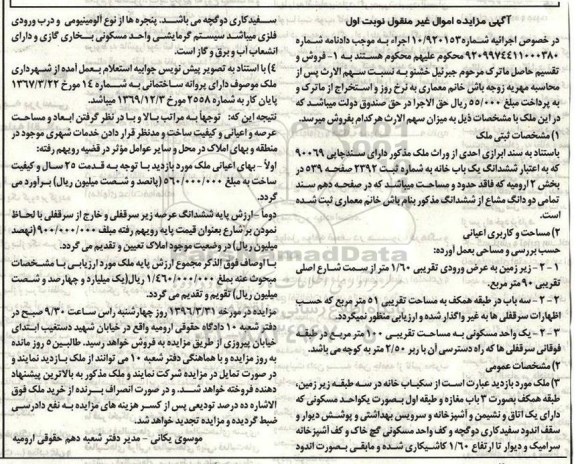 آگهی مزایده اموال غیر منقول نوبت اول
در خصوص اجرائیه شماره ۱۰/۹۲۰۱۵۳ اجراء به موجب دادنامه شماره
۹۲۰۹۹۷۴۴۱۱۰۰۰۳۸۰ محکوم علیهم محکوم هستند به ۱- فروش و
تقسیم حاصل ماترک مرحوم جبرئیل خشنو به نسبت سهم الارث پس از
محاسبه مهریه زوجه باش خانم معماری به نرخ روز و استخراج از ماترک و
به پرداخت مبلغ ۵۵/۰۰۰ ریال حق الاجرا در حق صندوق دولت میباشد که
در این ملک با مشخصات ذیل به میزان سهم الارث هر کدام بفروش میرسد.
۱) مشخصات ثبتی ملک
باستناد به سند ابرازی احدی از وراث ملک مذکور دارای سندچاپی ۹۰۰۶۹
که به اعتبار ششدانگ یک باب خانه به شماره ثبت ۲۳۹۲ صفحه ۵۳۹ در
بخش ۲ ارومیه که فاقد حدود و مساحت میباشند که در صفحه دهم سند
تمامی دو دانگ مشاع از ششدانگ مذکور بنام باش خانم معماری ثبت شده
است.
۲) مساحت و کاربری اعیانی
حسب بررسی و مساحی بعمل آورده:
۱-۲- زیر زمین به عرض ورودی تقریبی ۱/۶۰ متر از سمت شارع اصلی
تقریبی ۹۰ متر مربع.
۲-۲- سه باب در طبقه همکف به مساحت تقریبی ۵۱ متر مربع که حسب
اظهارات سرقفلی ها به غیر واگذار شده و ارزیابی منظور نمیگردد.
۳-۲- یک واحد مسکونی به مساحت تقریبی ۱۰۰ متر مربع در طبقه
فوقانی سرقفلی ها که راه دسترسی آن با ربر ۲/۵۰ متر به کوچه می باشد.
۲) مشخصات عمومی
۳) ملک مورد بازدید عبارت است از سکیاب خانه در سه طبقه زیر زمین،
طبقه همکف بصورت ۳ باب مغازه و طبقه اول بصورت یکواحد مسکونی که
دارای یک اتاق و نشیمن و آشپزخانه و سرویس بهداشتی و پوشش دیوار و
سقف اندود سفیدکاری دوگچه و کف واحد مسکونی گچ خاک و کف آشپزخانه
سرامیک و دیوار تا ارتفاع ۱/۶۰ کاشیکاری شده و مابقی بصورت اندود
سفیدکاری دوگچه می باشند. پنجره ها از نوع آلومینیومی و درب ورودی
فلزی میباشد سیستم گرمایشی واحد مسکونی بخاری گازی و دارای
انشعاب آب و برق و گاز است.
۴) با استناد به تصویر پیش نویس جوابیه استعلام بعمل آمده از شهرداری
ملک موصوف دارای پروانه ساختمانی به شماره ۱۴ مورخ ۱۳۶۷/۳/۲۲
پایان کار به شماره ۲۵۵۸ مورخ ۱۳۶۹/۱۲/۳ میباشد.
نتیجه این که: توجهاً به مراتب بالا و با در نظر گرفتن ابعاد و مساحت
عرصه و اعیانی و کیفیت ساخت و مدنظر قرار دادن خدمات شهری موجود در
منطقه و بهای املاک در محل و سایر عوامل مؤثر در قضیه رویهم رفته:
اولاً- بهای اعیانی ملک مورد بازدید با توجه به قدمت ۲۵ سال و کیفیت
ساخت به مبلغ ۵۶۰/۰۰۰/۰۰۰ (پانصد و شصت میلیون ریال) برآورد می
گردد.
دوماً- ارزش پایه ششدانگ عرصه زیر سرقفلی و خارج از سرقفلی با لحاظ
نمودن بر شارع بعنوان قیمت پایه رویهم رفته مبلغ ۹۰۰/۰۰۰/۰۰۰ (نهصد
میلیون ریال) در وضعیت موجود املاک تعیین و تقدیم می گردد.
با اوصاف فوق الذکر مجموع ارزش پایه ملک مورد ارزیابی با مشخصات
مبحوث عنه بمبلغ ۱/۴۶۰/۰۰۰/۰۰۰ ریال (یک میلیارد و چهارصد و شصت
میلیون ریال) تقویم و تقدیم می گردد.
مزایده در مورخه ۱۳۹۶/۳/۳۱ روز چهارشنبه راس ساعت ۹/۳۰ صبح در
دفتر شعبه ۱۰ دادگاه حقوقی ارومیه واقع در خیابان شهید دستغیب ابتدای
خیابان پیروزی از طریق مزایده به فروش خواهد رسید. طالبین ۵ روز مانده
به روز مزایده و با هماهنگی دفتر شعبه ۱۰ می توانند از ملک بازدید نمایند و
در صورت تمایل در مزایده شرکت نمایند و ملک مذکور به بالاترین پیشنهاد
دهنده فروخته خواهد شد. و در صورت انصراف برنده از خرید ملک فوق
الاشاره ده درصد تودیعی پس از کسر هزینه های مزایده به نفع دادرسی
ضبط گردیده و مزایده تجدید خواهد شد.
موسوی یکانی - مدیر دفتر شعبه دهم حقوقی ارومیه